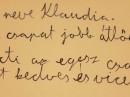 neve Klaudia.
csapat jobb ütlö
eti az egész csa
t kedves és vice